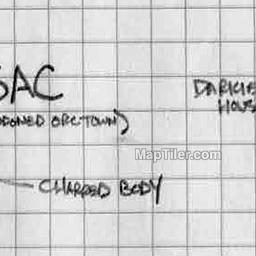 SAC
DONED ORC-TOWN)
DARKLE
HOUS
MapTiler.com
CHARRED BODY